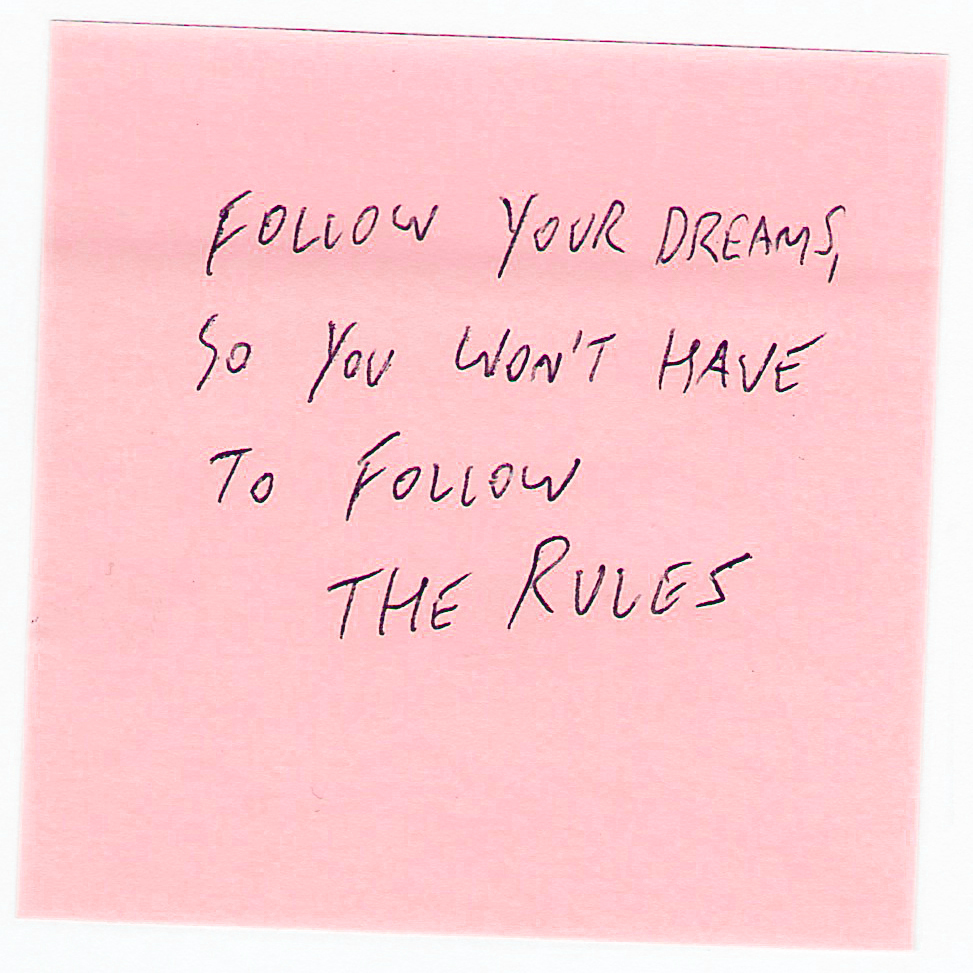 FOLLOW YOUR DREAMS,
SO YOU WON'T HAVE
TO FOLLOW
THE RULES